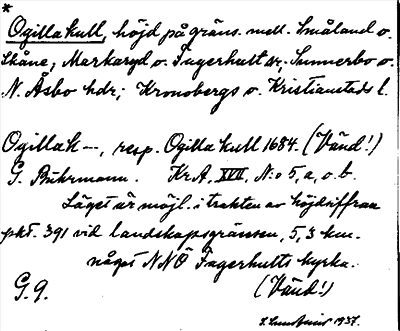 *
Ogillakull, höjd på gräns. mell. Småland o.
Skåne; Markaryd o. Fagerhult sr. Sunnerbo o.
N. Åsbo hdr; Kronobergs o. Kristianstads l.
Ogillak—, resp. Ogilla kull 1684. (Vänd!)
G. Buhrmann. Kr.A. XVII, N:o 5, a, o. b.
Läget är möjl. i trakten av höjdsiffran
pkt. 391 vid landskapsgränsen, 5,3 km.
något NNÖ Fagerhults kyrka.
G. 9. (Vänd!)
1937.